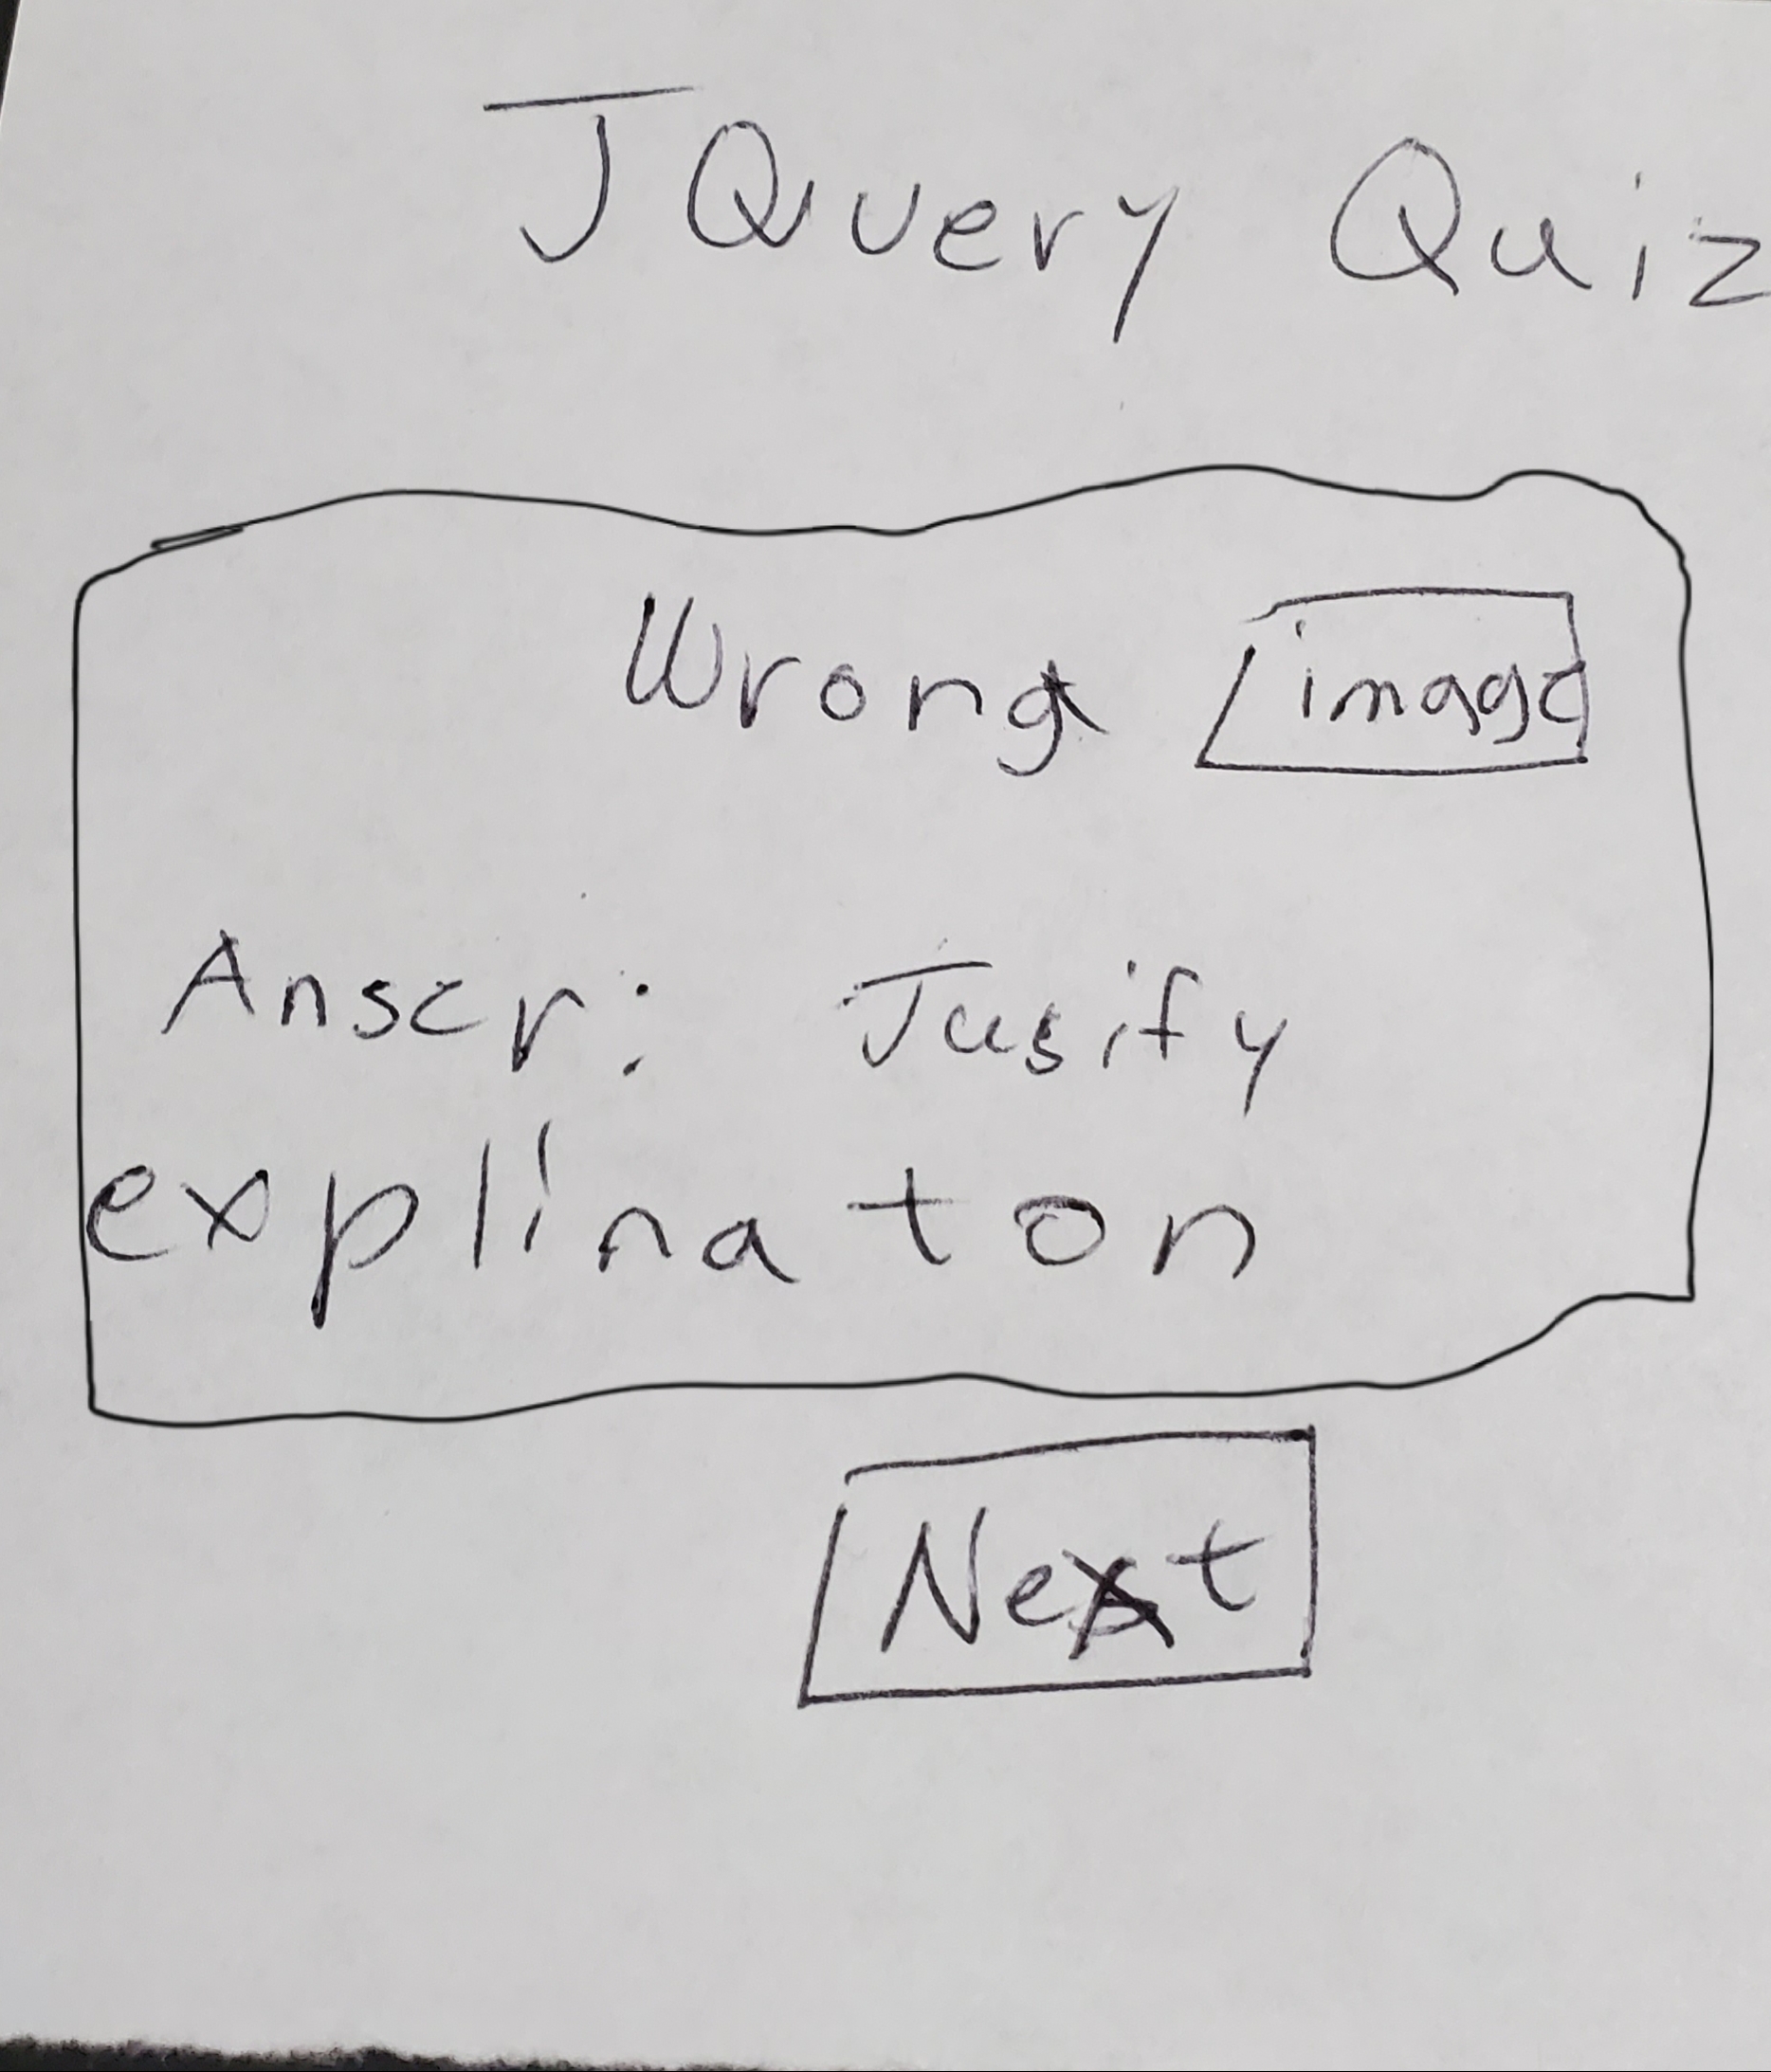 JQuery Quiz
Wrong image
Anser: Jusify
explinaton
Next